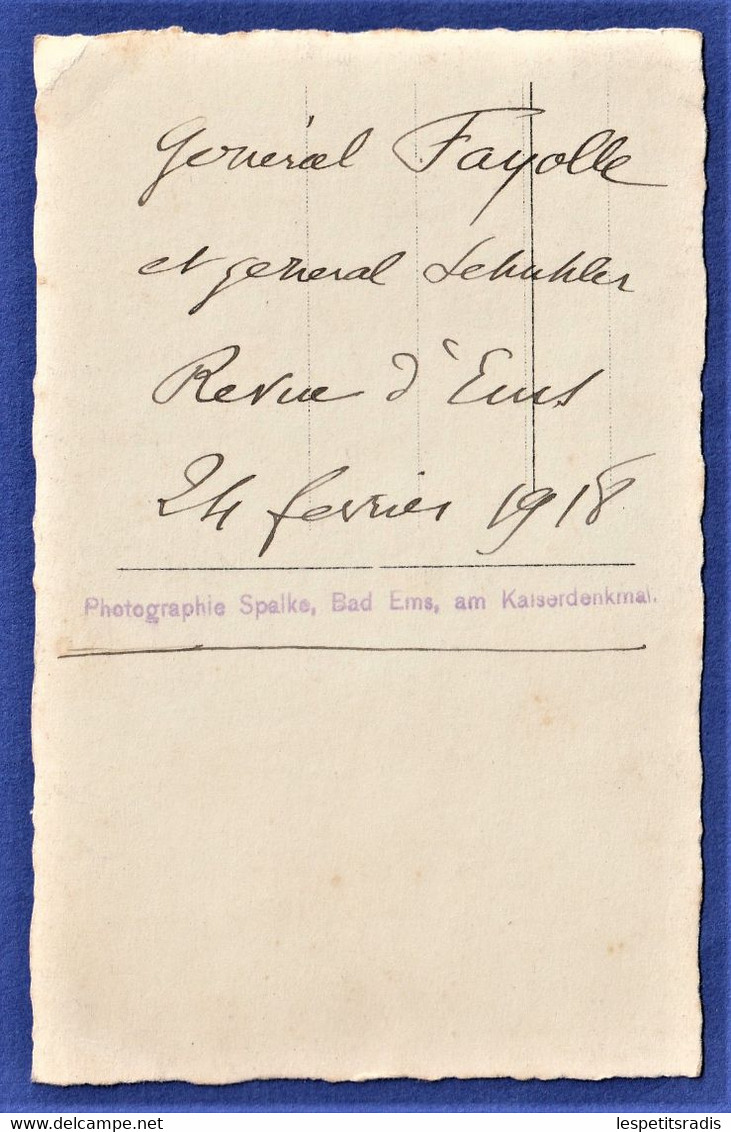 Général Fayolle
et general Schuhler
Revue d'Ems
24 fevrier 1918
Photographie Spalke, Bad Ems, am Kaiserdenkmal.
lespetitsradis